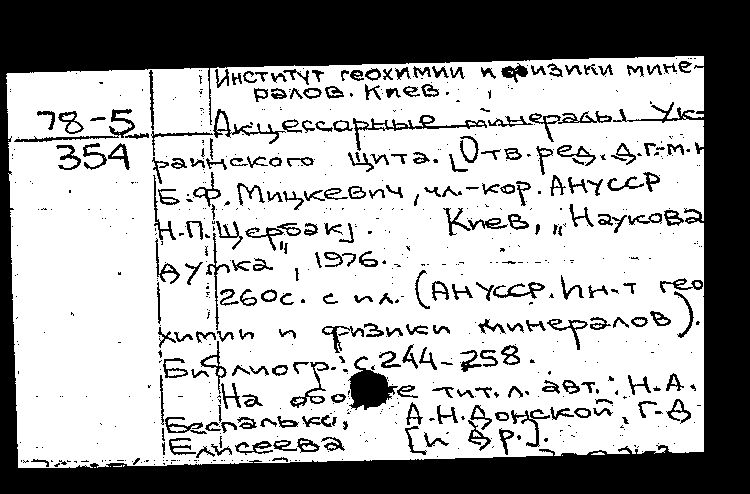 Институт геохимии и физики мине-
ралов. Киев.
78-5
Акцессорные минералы Ук-
354
раинского щита. [Отв. ред. д.г.-м.н
Б.Ф. Мицкевич, чл.-кор. АНУССР
Н.П. Щербак].   Киев, „Наукова
думка", 1976.
260с. с ил. (АНУССР. Ин-т гео
химии и физики минералов).
Библиогр.: с.244-258.
На обо те тит. л. авт.: Н.А.
Беспалько, А.Н. Донской, Г.Д
Елисеева [и др.].